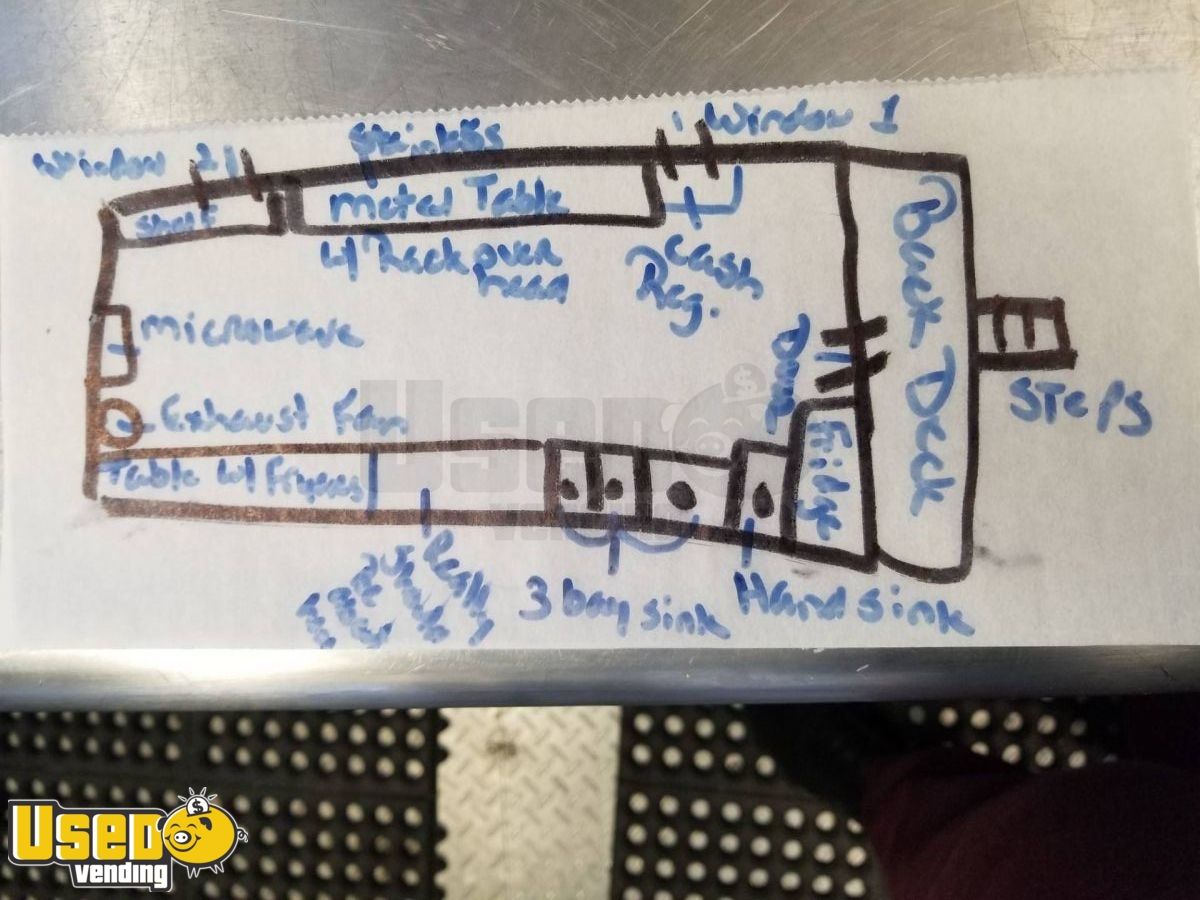 Window 2
Window 1
Shelf
Metal Table
w/ Rack over
head
Cash
Reg.
Back Deck
Microwave
Door
Steps
Exhaust Fan
Fridge
Table w/ Fryers
3 bay sink
Hand sink
USED
VENDING
USED
VENDING
$